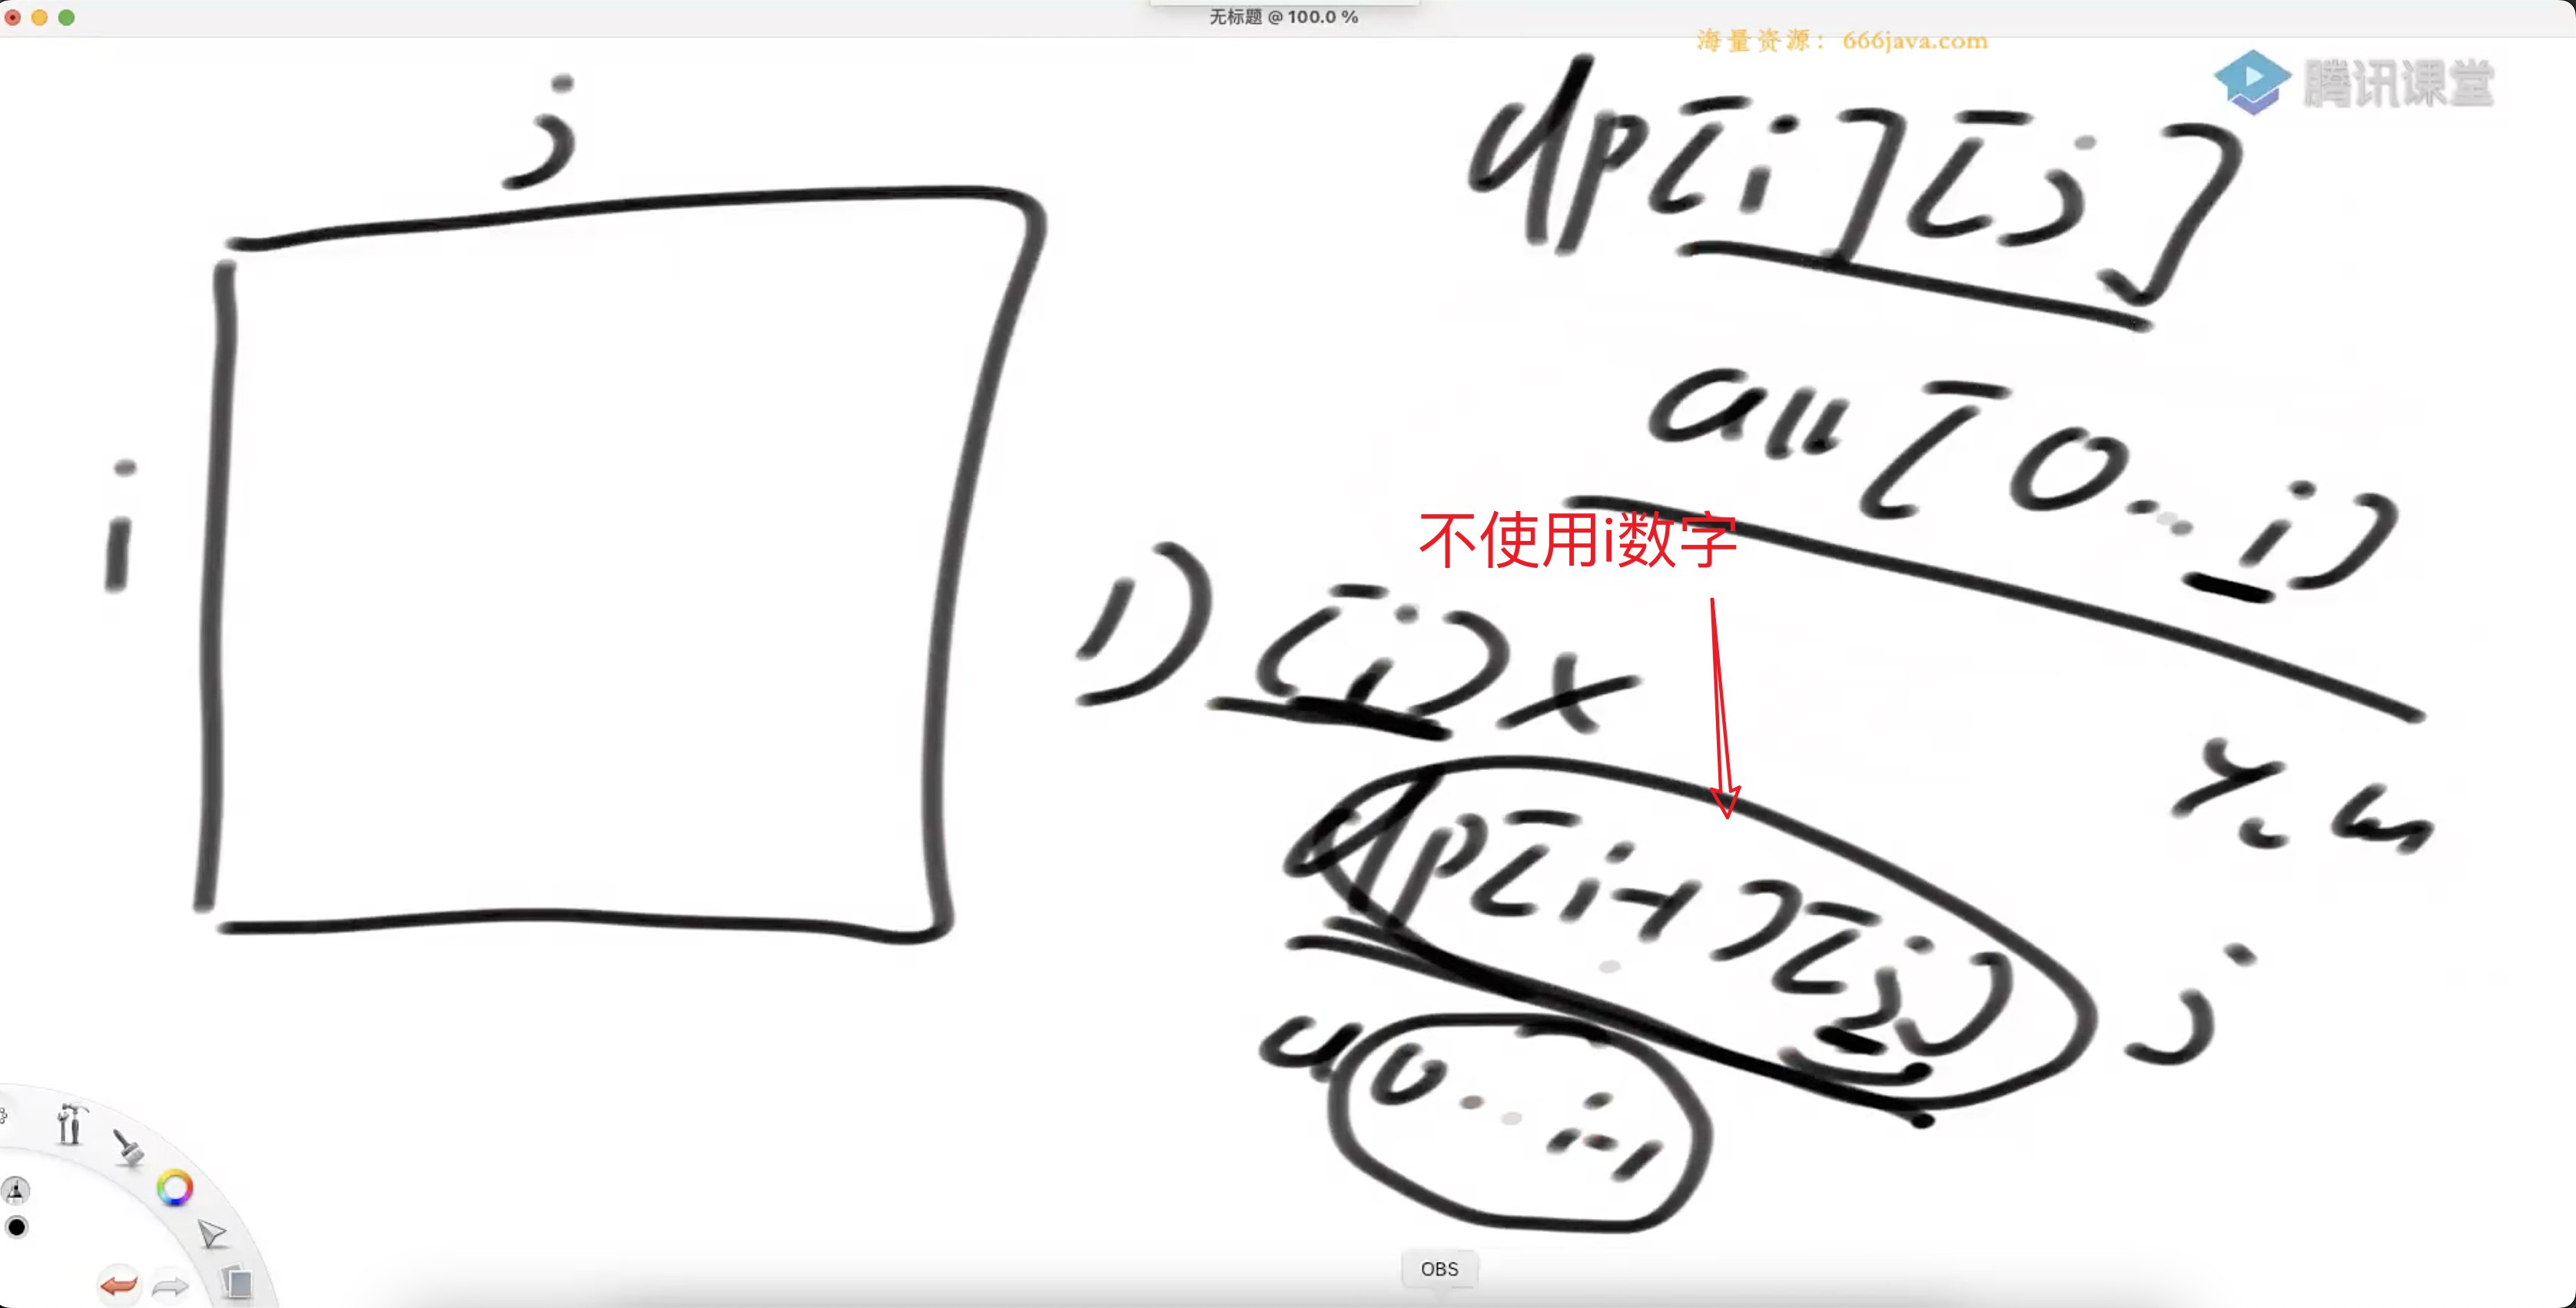 无标题 @ 100.0 %
海量资源：666java.com
腾讯课堂
j
dp[i][j]
i
arr[0...i]
不使用i数字
1) [i] x
dp[i-1][j]
j
0...i-1
OBS